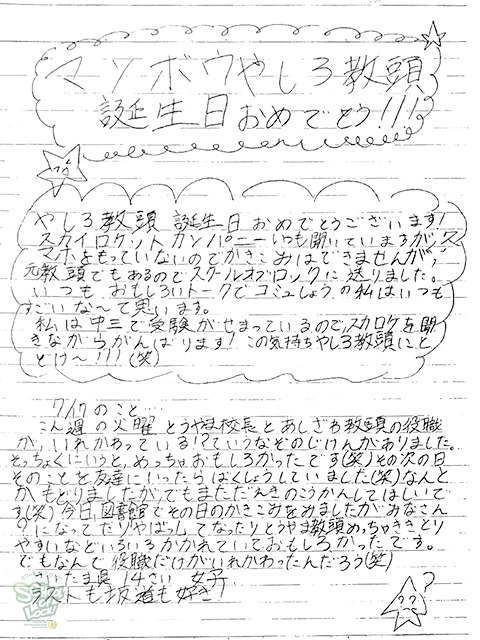 マンボウやしろ教頭
誕生日おめでとう!!!
やしろ教頭 誕生日おめでとうございます!
スカイロケットカンパニーいつも聞いていますが、ス
マホをもっていないのでかきこみはできませんが、
元教頭でもあるのでスクールオブロックに送りました。
いつもおもしろいトークでコミュしょうの私はいつも
すごいな〜て思います。
私は中三で受験がせまっているので、スカロケを聞
きながらがんばります!この気持ちやしろ教頭にと
どけ〜!!!(笑)
7/17のこと…
こん週の火曜とうやま校長とあしざわ教頭の役職
が、いれかわっている!?ていうなぞのじけんがありました。
そっちょくにいうと、めっちゃおもしろかったです(笑)その次の日
そのことを友達にいったらばくしょうしていました(笑)なんと
かもどりましたが、でもまたたんきのこうかんしてほしいで
す(笑)今日、図書館でその日のかきこみをみましたがみなさん
?になってたり、やばっ!てなったりとうやま教頭めっちゃききとり
やすいなどいろいろかかれていておもしろかったです。
でもなんで役職だけがいれかわったんだろう(笑)
さいたま県 14さい 女子
ラストも坂道も好き♡
?
??
School of Lock!